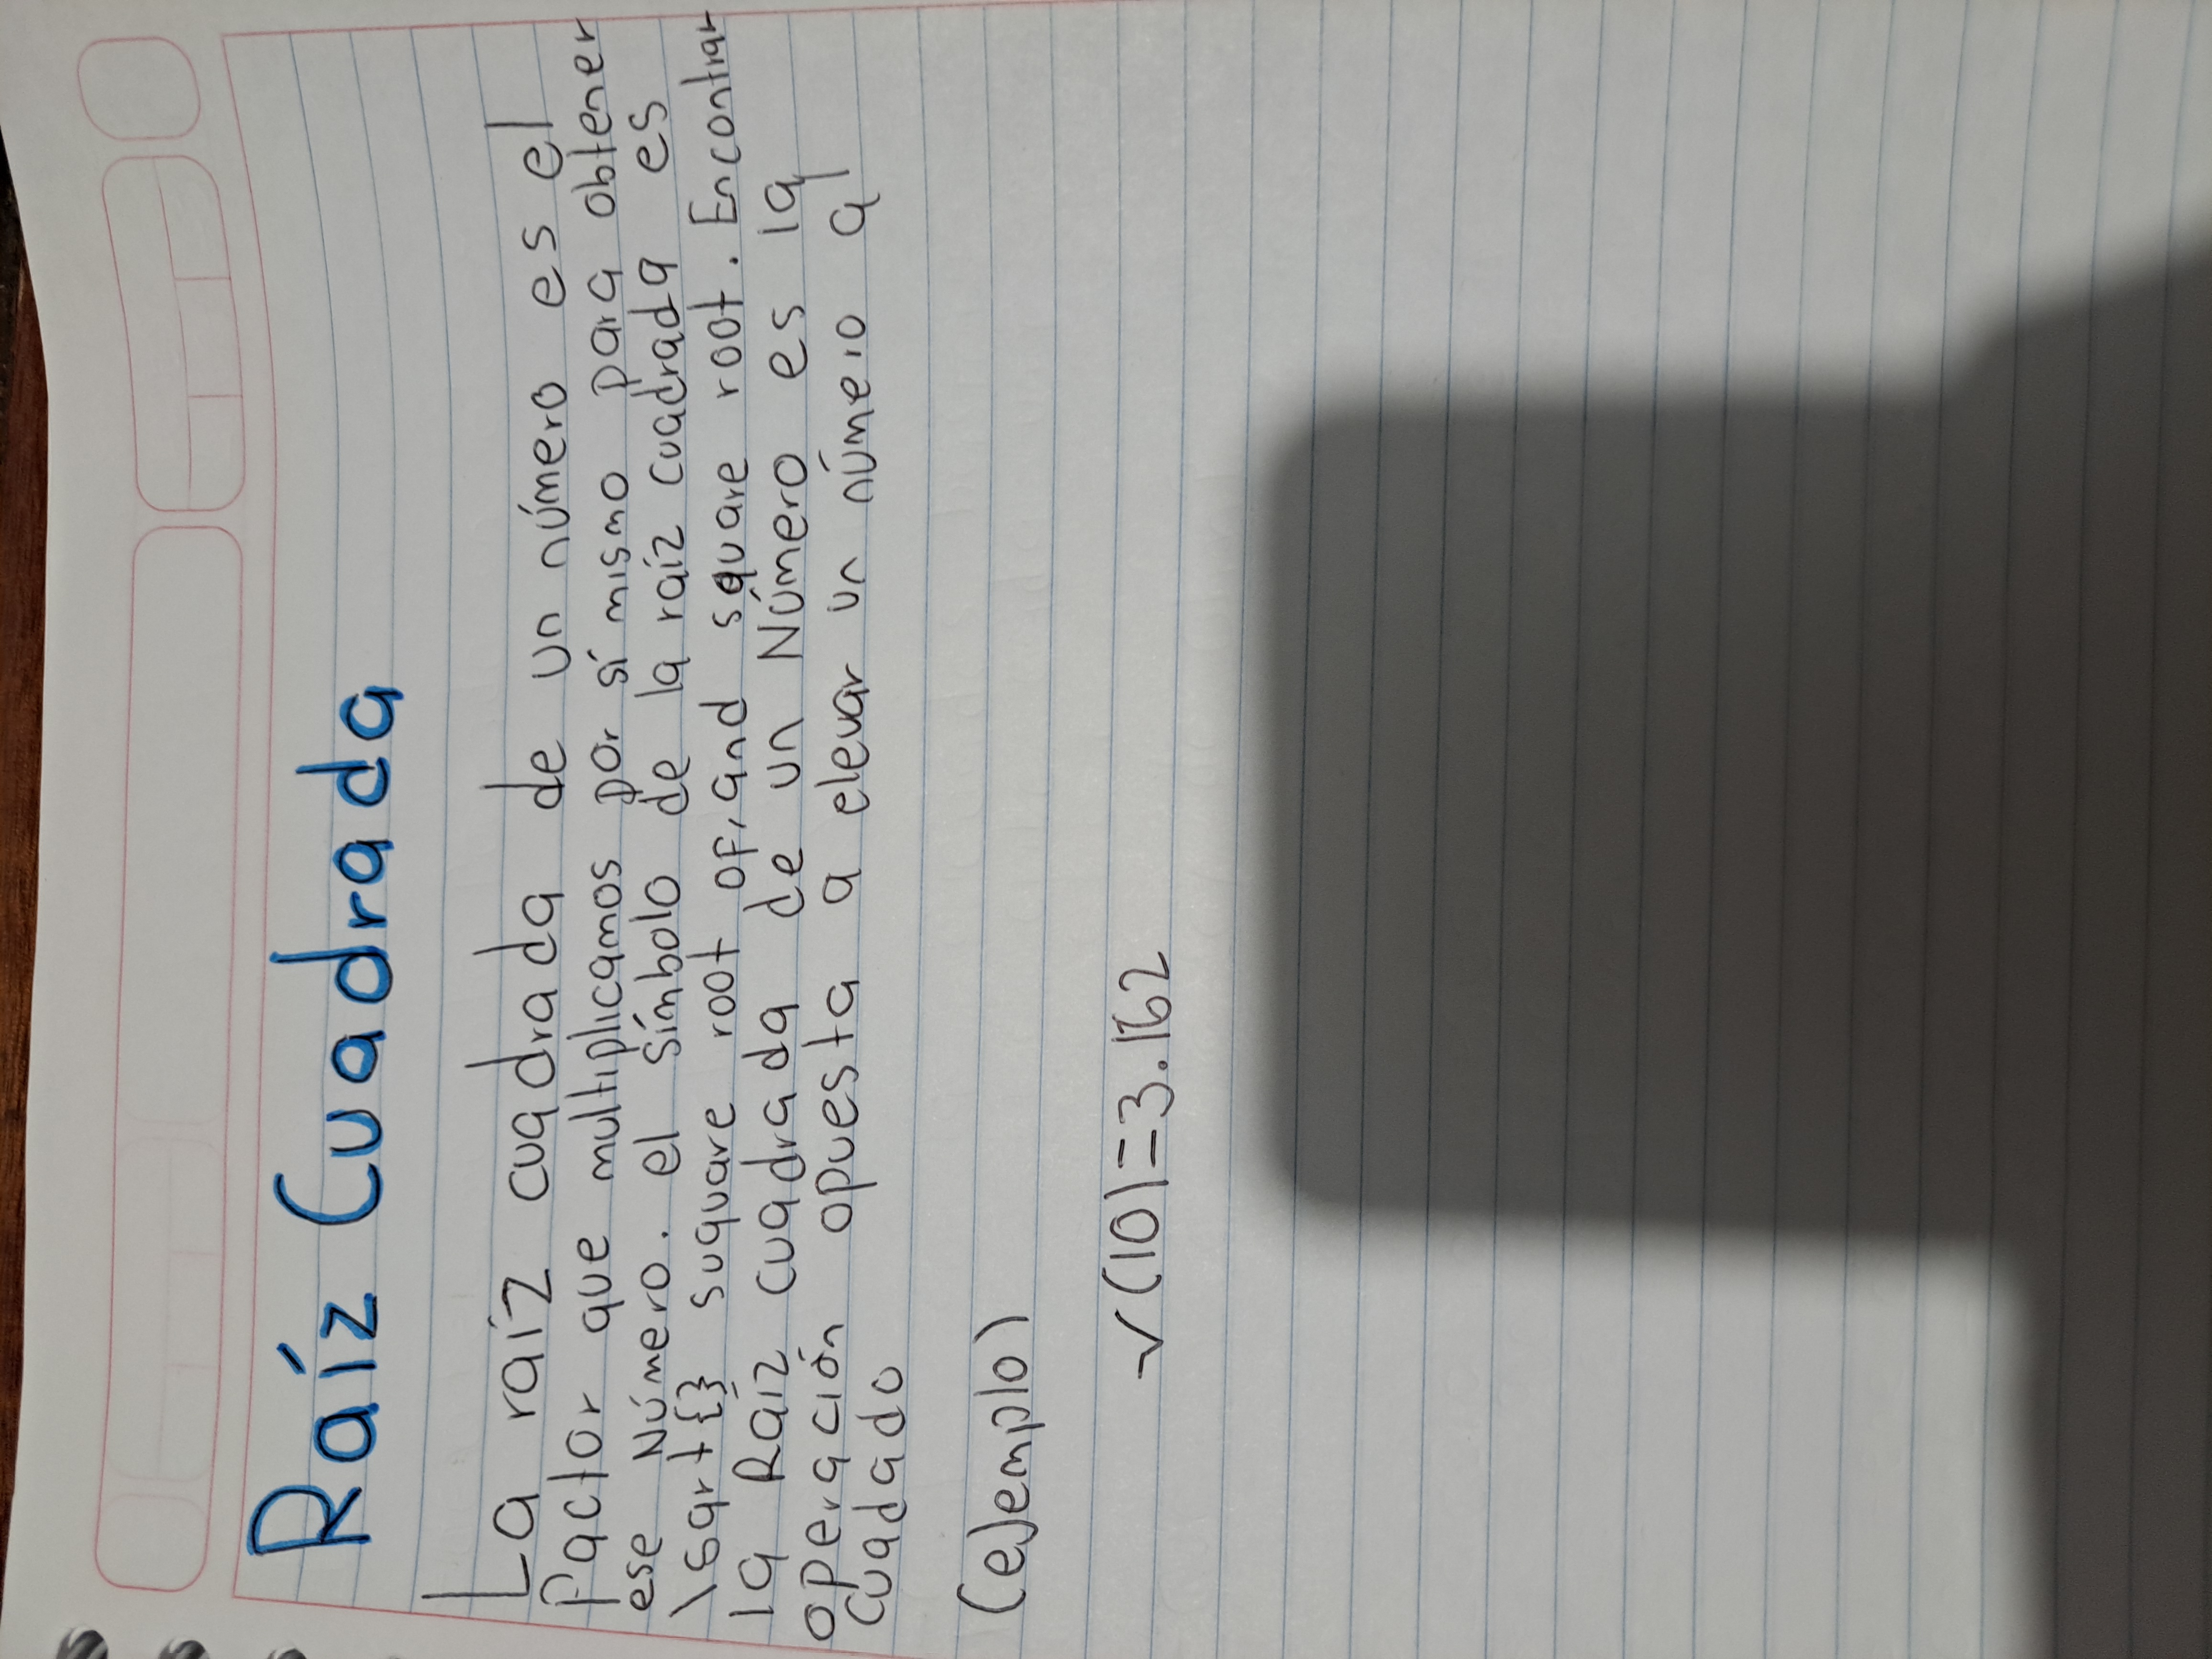 Raíz Cuadrada
La raíz cuadrada de un número es el
factor que multiplicamos por sí mismo para obtener
ese Número. el símbolo de la raíz cuadrada es
\sqrt{} suquare root of, and square root. Encontrar
la Raíz cuadrada de un Número es la
operación opuesta a elevar un número al
cuadado
(ejemplo)
√(10)=3.162